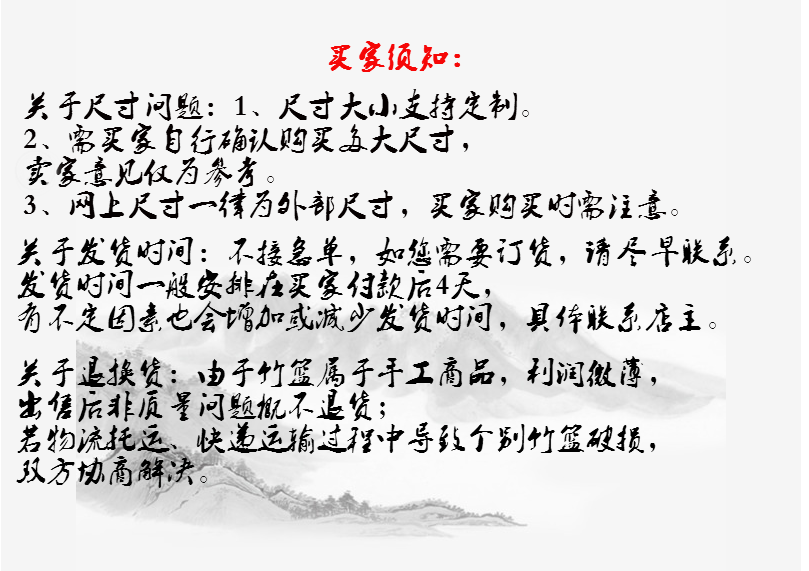 买家须知：
关于尺寸问题：1、尺寸大小支持定制。
2、需买家自行确认购买多大尺寸，
卖家意见仅为参考。
3、网上尺寸一律为外部尺寸，买家购买时需注意。
关于发货时间：不接急单，如您需要订货，请尽早联系。
发货时间一般安排在买家付款后4天，
有不定因素也会增加或减少发货时间，具体联系店主。
关于退换货：由于竹篮属于手工商品，利润微薄，
出售后非质量问题概不退货；
若物流托运、快递运输过程中导致个别竹篮破损，
双方协商解决。